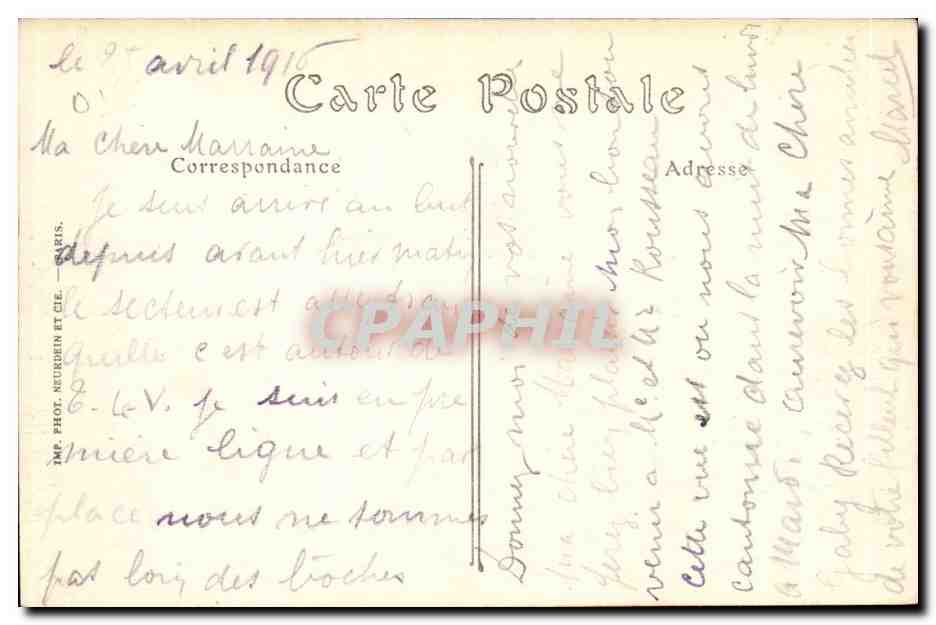 le avril 1916
Carte Postale
Correspondance
Adresse
Ma chère Marraine
Je suis arrivé au but
depuis avant hier matin
le secteur est assez tran
quille c'est autour de
T.L.V. je suis en pre
mière ligne et par
place nous ne sommes
pas loin des boches
Donnez moi de vos nouvelles
ma chère Marraine vous me
ferez bien plaisir mon bon
venir a Me et Mr Rousseau
cette vue est ou nous avons
cantonné dans la nuit de lundi
a Mardi, au revoir Ma Chère
Gaby Recevez les bonnes amitiés
de votre filleul qui vous aime Marcel
IMP. PHOT. NEURDEIN ET CIE. — PARIS.
CPAPHIL